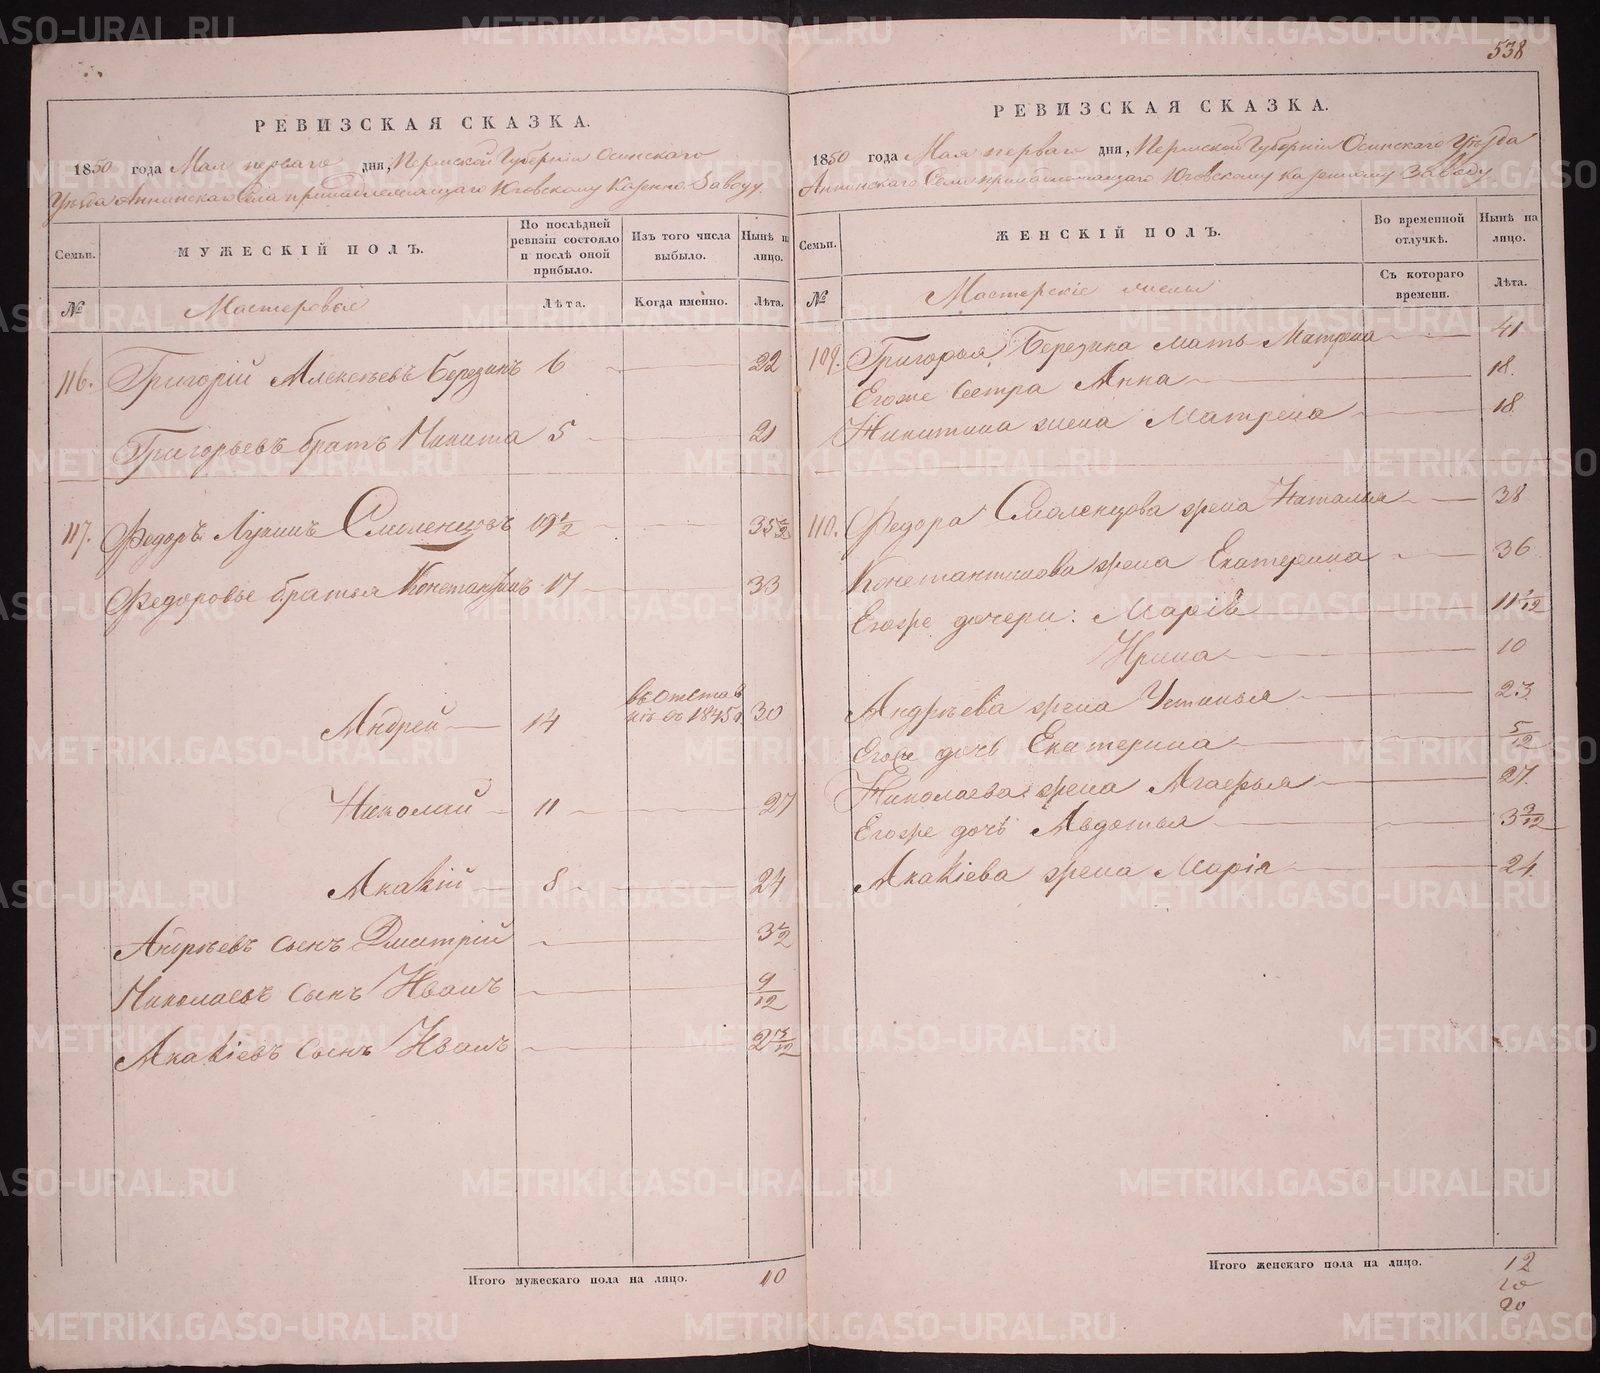 538
РЕВИЗСКАЯ СКАЗКА.
1850 года Мая перваго дня, Пермской Губерніи Осинскаго
Уѣзда Аннинскаго Села принадлежащаго Юговскому Казенно. Заводу
Семьи.
МУЖЕСКІЙ ПОЛЪ.
По послѣдней ревизіи состояло и послѣ оной прибыло.
Изъ того числа выбыло.
Нынѣ н лицо.
№
Мастеровые
Лѣта.
Когда именно.
Лѣта.
116. Григорій Алексѣевъ Березинъ 6 22
Григорьевъ братъ Никита 5 21
117. Федоръ Лукинъ Смоленцовъ 19 1/2 35 1/2
Федоровы братья Константинъ 17 33
Андрей 14 въ отстав кѣ съ 1845 30
Николай 11 27
Акакій 8 24
Андрѣевъ сынъ Дмитрій 3 1/2
Николаевъ сынъ Иванъ 9/12
Акакіевъ сынъ Иванъ 2 3/12
Итого мужескаго пола на лицо. 10
РЕВИЗСКАЯ СКАЗКА.
1850 года Мая перваго дня, Пермской Губерніи Осинскаго Уѣзда
Аннинскаго Села принадлежащаго Юговскому казенному Заводу
Семьи.
ЖЕНСКІЙ ПОЛЪ.
Во временной отлучкѣ.
Нынѣ на лицо.
№
Мастерскіе жены
Съ котораго времени.
Лѣта.
109. Григорья Березина мать Матрена 41
Егоже сестра Анна 18.
Никитина жена Матрена 18
110. Федора Смоленцова жена Наталья 38
Константинова жена Екатерина 36
Егоже дочери: Марія 11 7/12
Ирина 10
Андрѣева жена Устинья 23
Егоже дочь Екатерина 5/12
Николаева жена Агафья 27
Егоже дочь Авдотья 3 9/12
Акакіева жена Марія 24
Итого женскаго пола на лицо. 12
20
20
METRIKI.GASO-URAL.RU